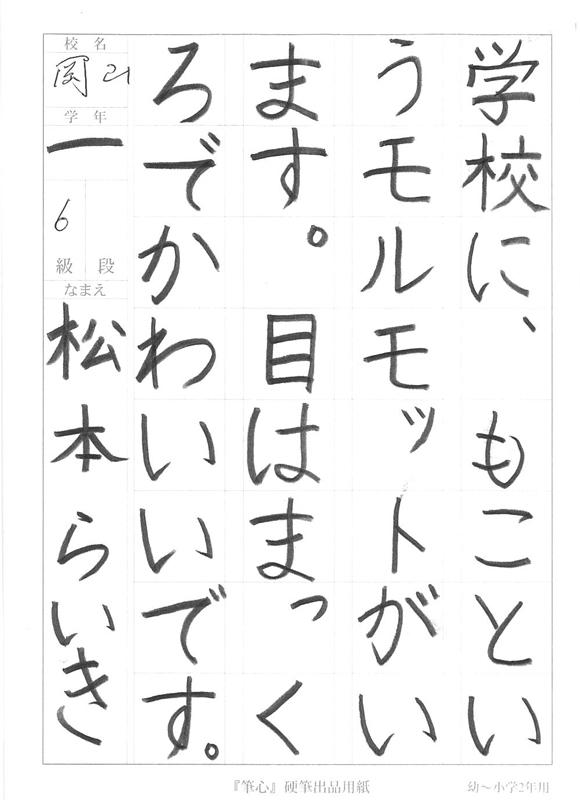 学校に、もことい
うモルモットがい
ます。目はまっく
ろでかわいいです。
校名
岡山
学年
一
6
級 段
なまえ
松本らいき
『筆心』硬筆出品用紙
幼〜小学2年用